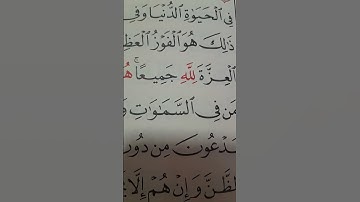 فِي الْحَيَوٰةِ الدُّنْيَا وَفِي
ذَٰلِكَ هُوَ الْفَوْزُ الْعَظِ
الْعِزَّةَ لِلَّهِ جَمِيعًا ۚ هُ
مَن فِي السَّمَٰوَٰتِ وَ
يَدْعُونَ مِن دُونِ
لظَّنَّ وَإِنْ هُمْ إِلَّا يَ